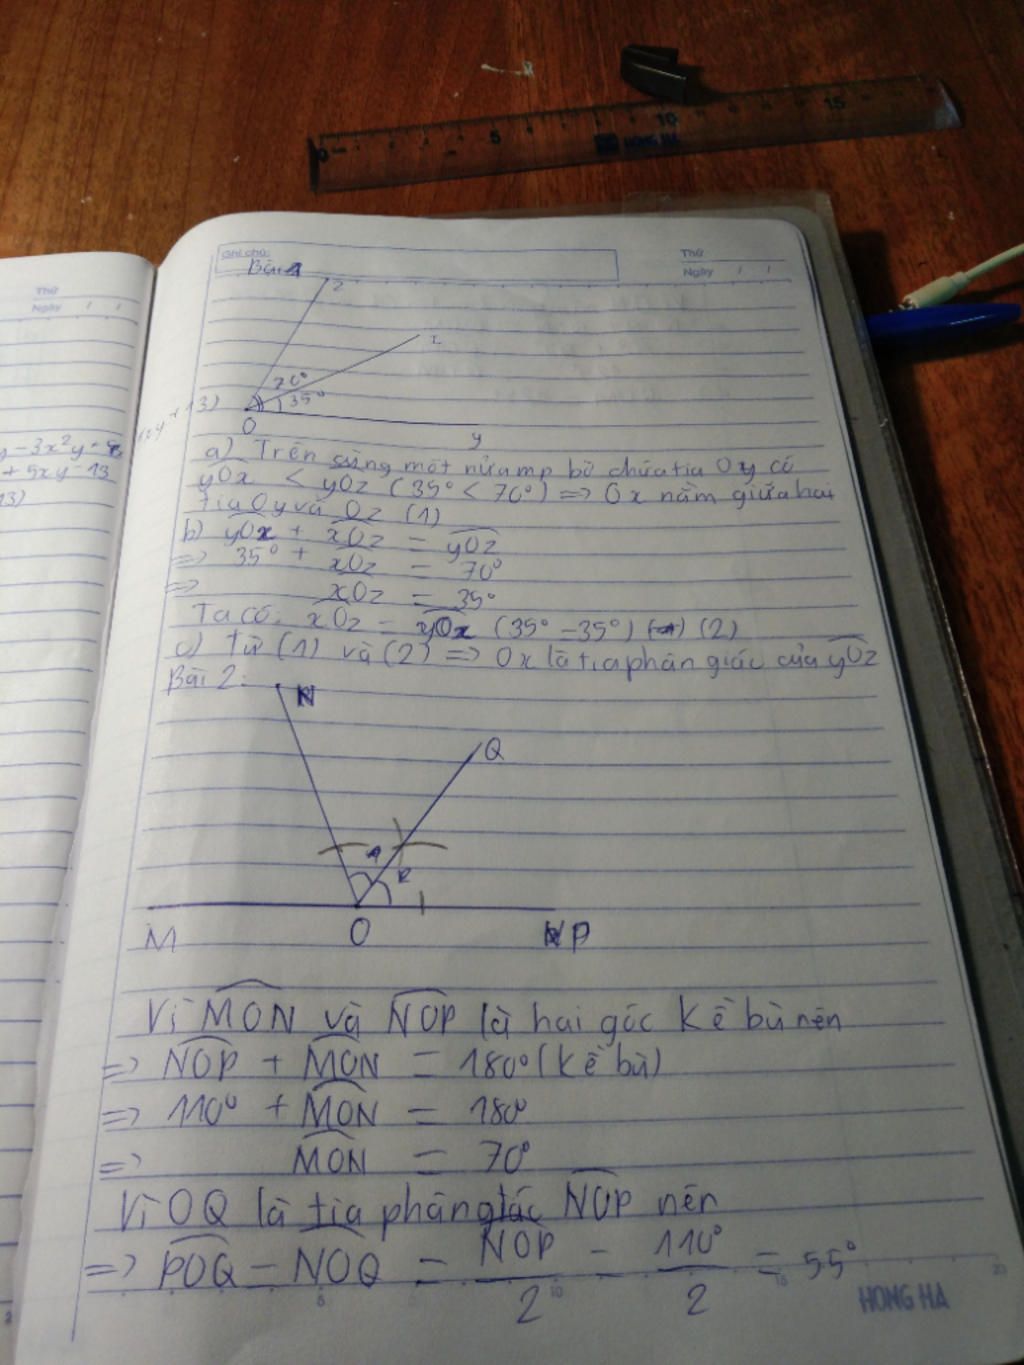 0 5 10 15
HONG HA
Thứ
Ngày / /
Ghi chú:
Bài 1
Thứ
Ngày / /
z
x
70°
35°
O
y
+ 5xy - 13
13)
a) Trên cùng một nửa mp bờ chứa tia Oy có
yOx < yOz (35° < 70°) => Ox nằm giữa hai
tia Oy và Oz (1)
b) yOx + xOz = yOz
=> 35° + xOz = 70°
=> xOz = 35°
Ta có: xOz = yOx (35° = 35°) (2)
c) Từ (1) và (2) => Ox là tia phân giác của yOz
Bài 2:
N
Q
M
O
P
Vì MON và NOP là hai góc kề bù nên
=> NOP + MON = 180° (kề bù)
=> 110° + MON = 180°
=> MON = 70°
Vì OQ là tia phân giác NOP nên
=> POQ = NOQ = NOP/2 = 110°/2 = 55°
5 10 15 20
HONG HA